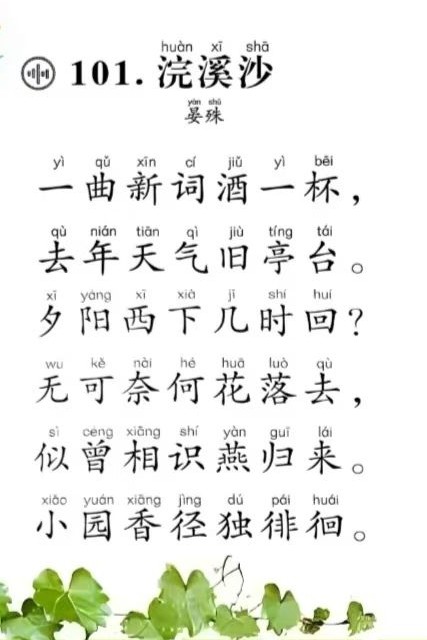 huàn xī shā
101. 浣溪沙
yàn shū
晏殊
yì qǔ xīn cí jiǔ yì bēi
一曲新词酒一杯，
qù nián tiān qì jiù tíng tái
去年天气旧亭台。
xī yáng xī xià jǐ shí huí
夕阳西下几时回？
wu kě nài hé huā luò qù
无可奈何花落去，
sì céng xiāng shí yàn guī lái
似曾相识燕归来。
xiǎo yuán xiāng jìng dú pái huái
小园香径独徘徊。